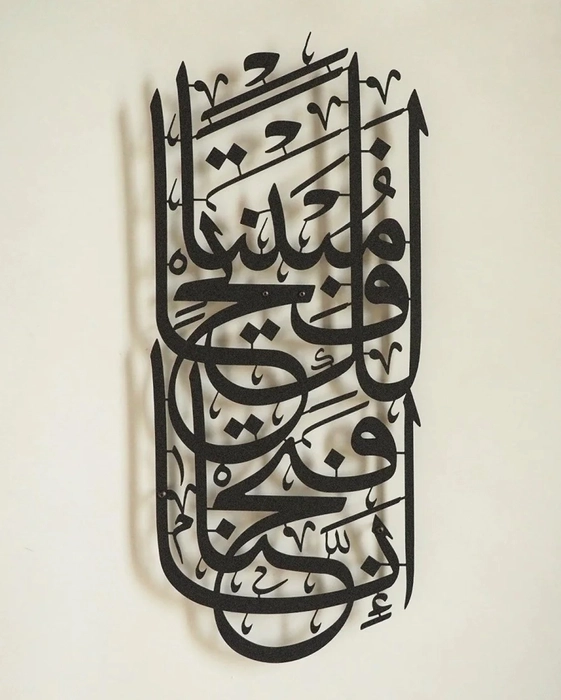 إِنَّا فَتَحْنَا
لَكَ فَتْحًا مُبِينًا